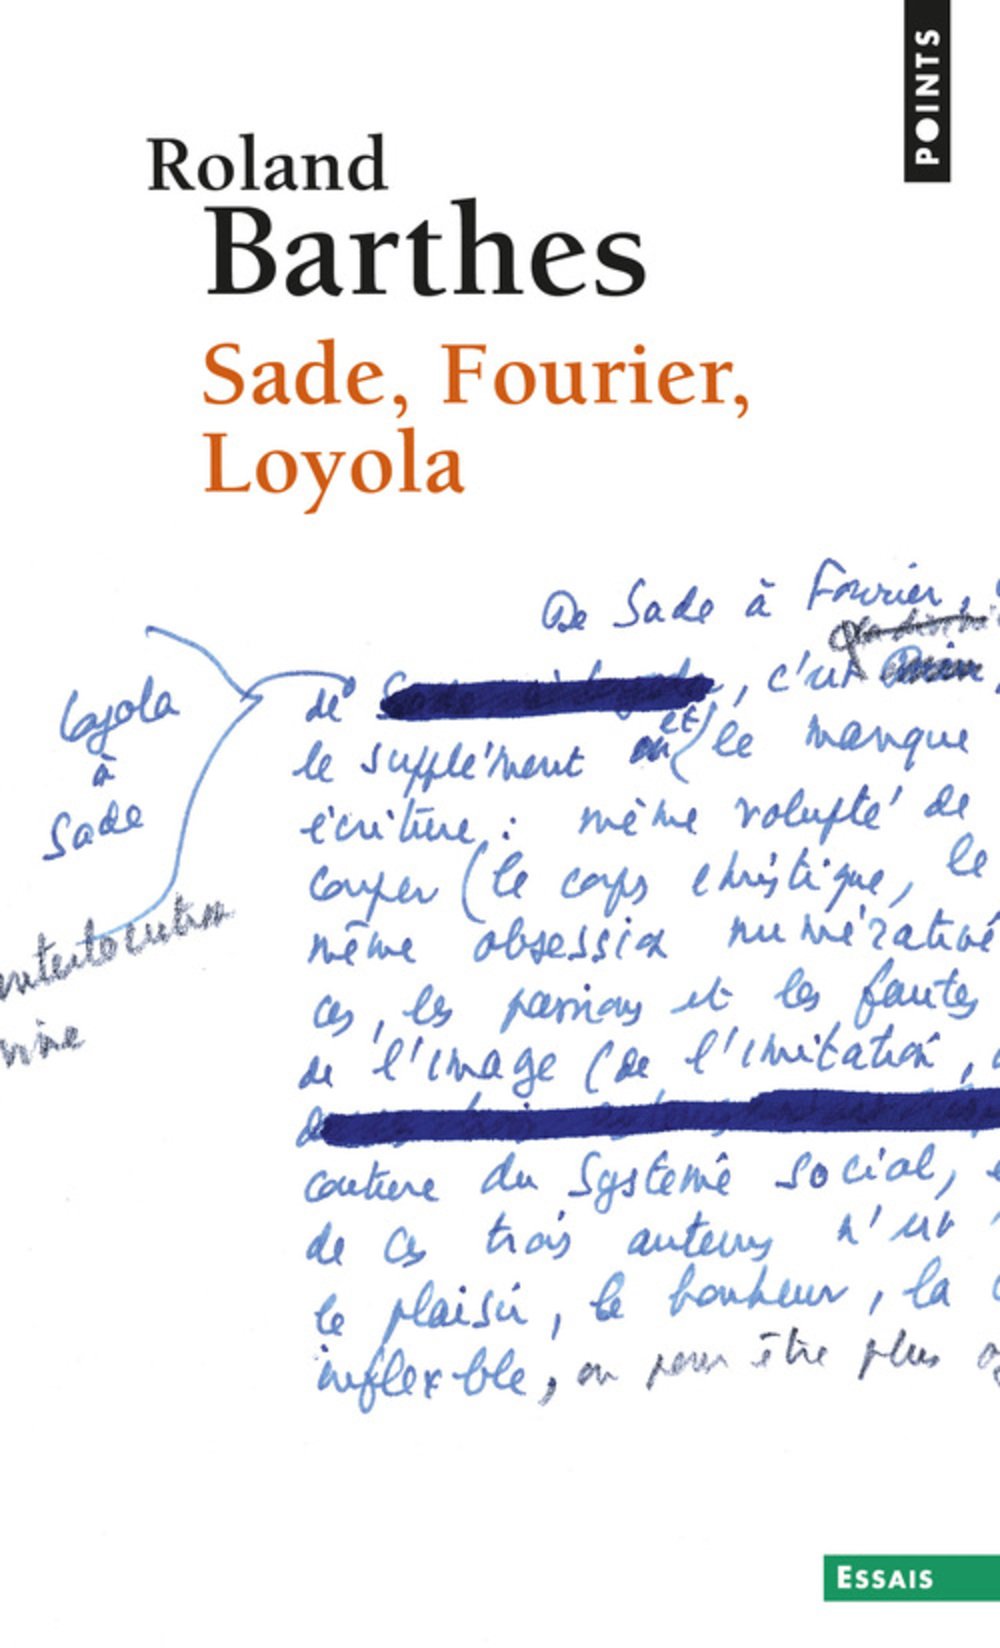 POINTS
Roland
Barthes
Sade, Fourier,
Loyola
De Sade à Fourier,
de , c'est
Loyola
à
Sade
et
le supplément le manque
écriture : même volupté de
couper (le corps christique, le
même obsession numérative
ces, les passions et les fautes
de l'image (de l'imitation,
couture du système social,
de ces trois auteurs n'est
le plaisir, le bonheur, la
inflexible, ou pour être plus
ESSAIS